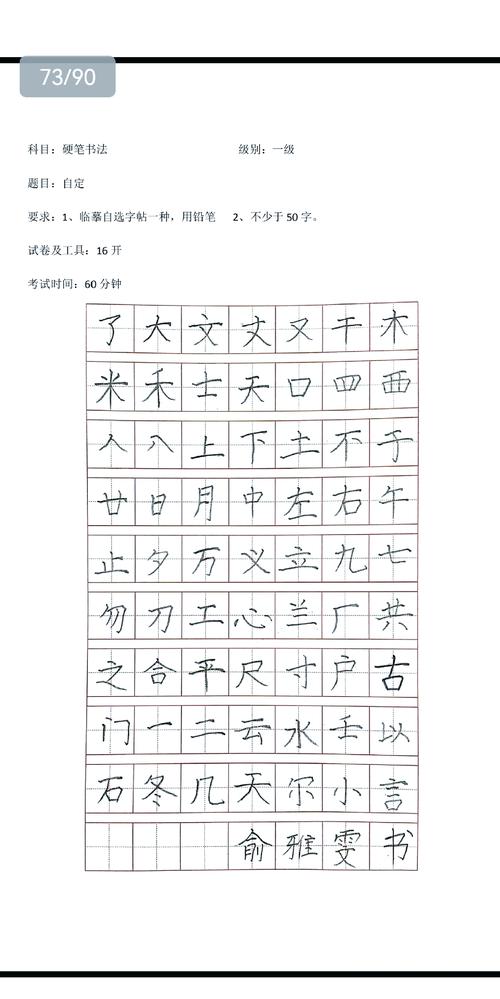 73/90
科目：硬笔书法 级别：一级
题目：自定
要求：1、临摹自选字帖一种，用铅笔 2、不少于 50 字。
试卷及工具：16 开
考试时间：60 分钟
了大文丈又干木
米禾士天口四西
人八上下土不于
廿日月中左右午
止夕万义立九七
勿刀工心兰厂共
之合平尺寸户古
门一二云水壬以
石冬几天尔小言
俞雅雯书